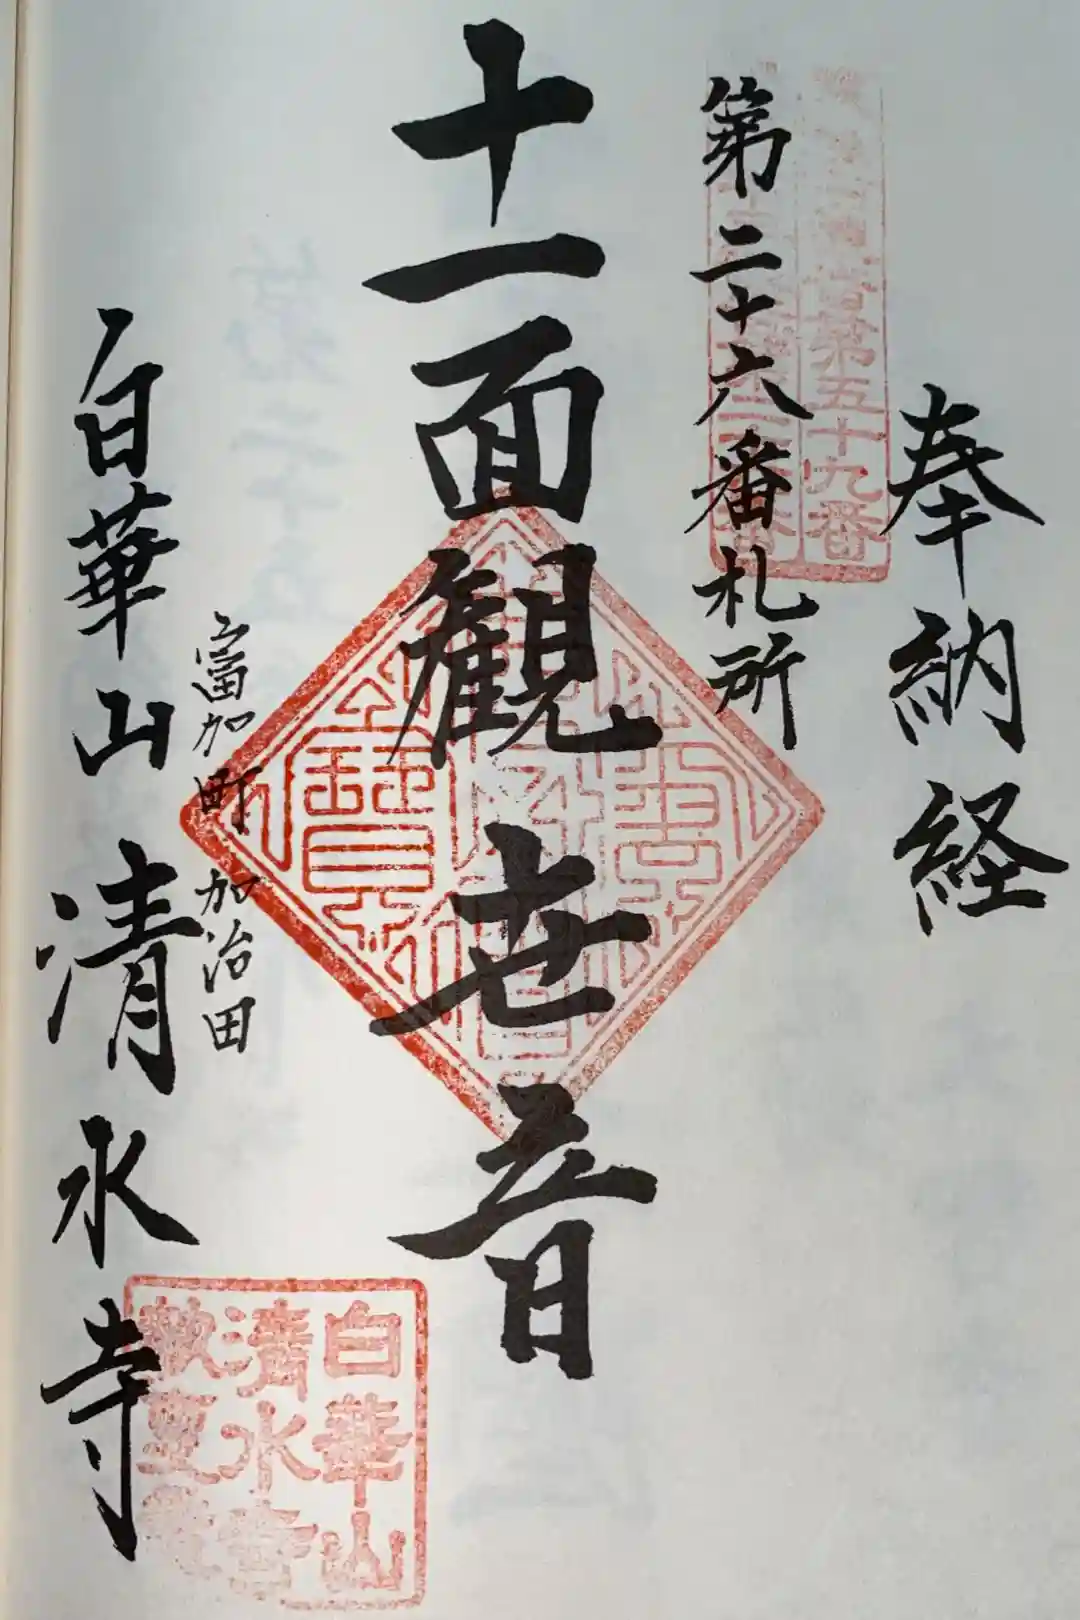 奉納経
第五十九番
第二十六番札所
十一面観世音
富加町加治田
白華山清水寺
白華山
清水寺